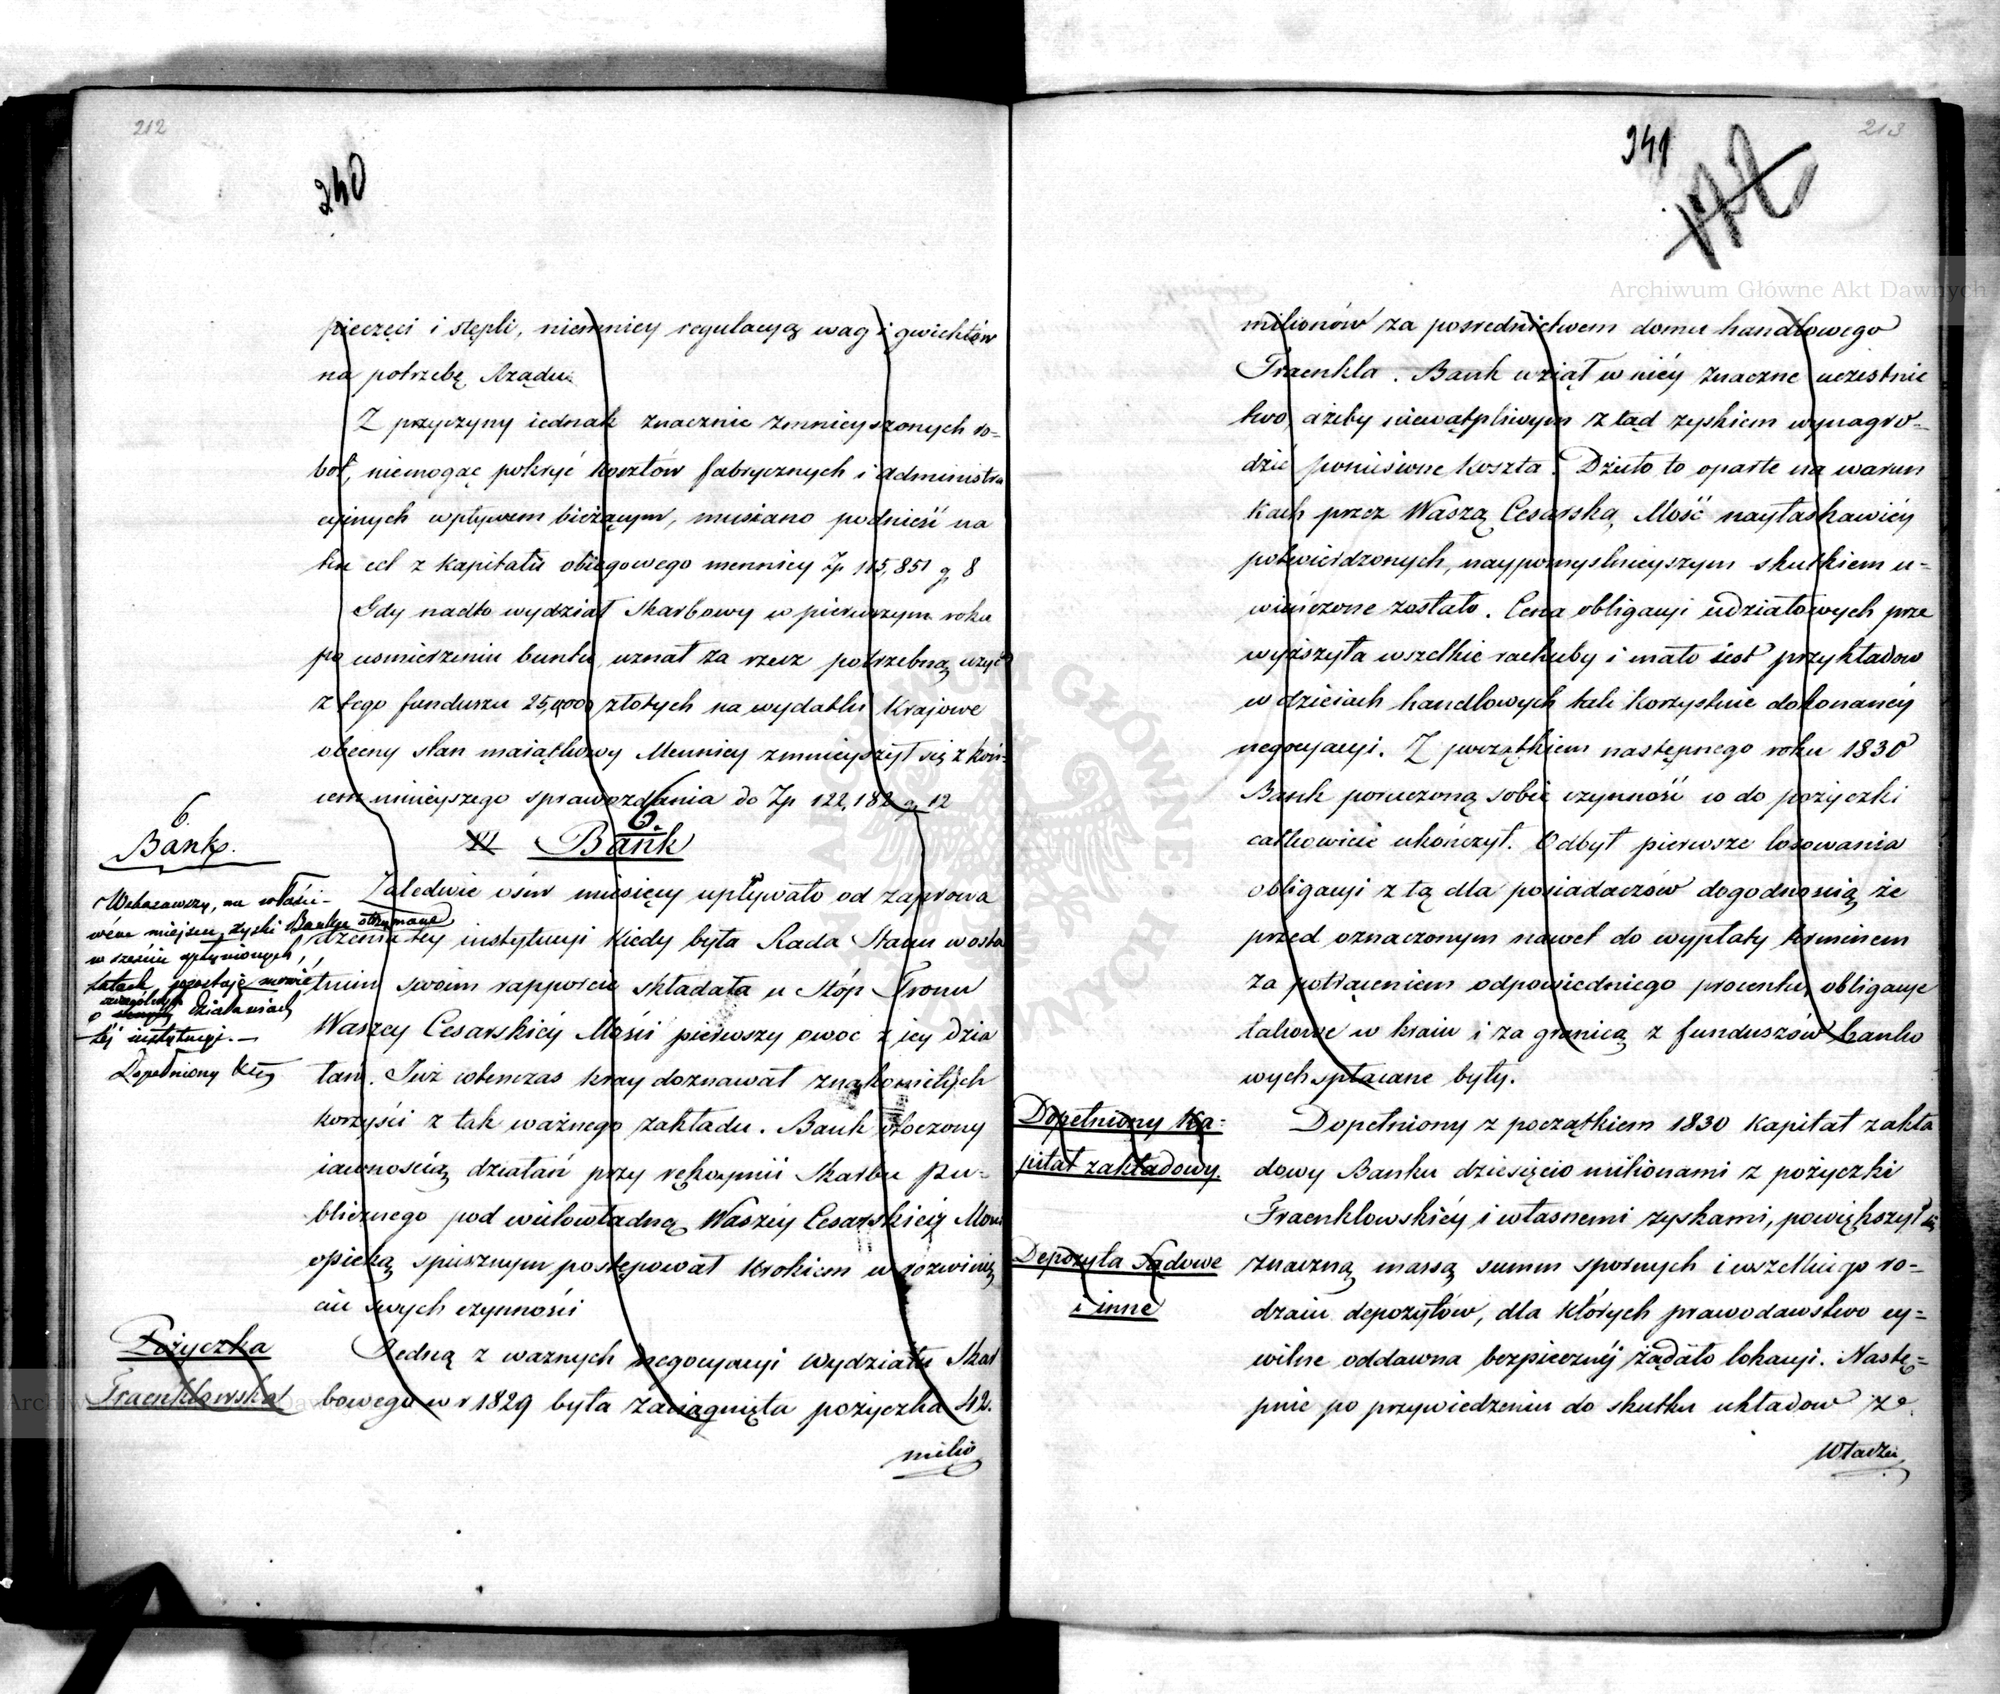 212
240
pieczęci i stępli, niemniey regulacyą wag i gwichtów
na potrzebę Rządu.
Z przyczyny iednak znacznie zmnieyszonych ro-
bot, niemogąc pokryć kosztów fabrycznych i administra
cyinych wpływem bieżącym, musiano podnieść na
ten cel z kapitału obiegowego mennicy Zp 115,851 g 8
Gdy nadto wydział Skarbowy w pierwszym roku
po usmierzeniu buntu uznał za rzecz potrzebną użyć
z tego funduszu 25,000 złotych na wydatki krajowe
obecny stan maiątkowy Mennicy zmnieyszył się z koń-
cem ninieyszego sprawozdania do Zp 122,182 g 12
6.
XI Bank
6.
Bank.
Wykazawszy, na właści-
wém miejscu zyski Banku otrzymane
w sześciu upłynionych
latach, pozostaje mówić
o szczególnych działaniach
téj instytucyi.—
Dopełniony Kap
Zaledwie ośm miesięcy upływało od zaprowa
dzenia tey instytucyi kiedy była Rada Stanu w osta
tnim swoim rapporcie składała u Stóp Tronu
Waszey Cesarskiéy Mości pierwszy owoc z iey dzia
łań. Już wtenczas kray doznawał znakomitych
korzyści z tak ważnego zakładu. Bank otoczony
iawnością działań przy rękoymii Skarbu Pu-
blicznego pod wielowładną Waszéy Cesarskiéy Mości
opieką spiesznym postępował krokiem w rozwinię
ciu swych czynności
Pożyczka
Fraenklowska
Jedną z ważnych negocyacyi wydziału Skar
bowego w r 1829 była zaciągnięta pożyczka 42.
milio
213
341
172
milionów za posrednictwem domu handlowego
Fraenkla. Bank wziął w niéy znaczne uczestnic
two, ażeby niewątpliwym z tąd zyskiem wynagro-
dzić poniesione koszta. Dzieło to oparte na warun
kach przez Waszą Cesarską Mość nayłaskawiéy
potwierdzonych, naypomyslnieyszym skutkiem u-
wieńczone zostało. Cena obligacyi udziałowych prze
wyższyła wszelkie rachuby i mało iest przykładow
w dzieiach handlowych tak korzystnie dokonanéy
negocyacyi. Z początkiem następnego roku 1830
Bank poruczoną sobie czynność co do pożyczki
całkowicie ukończył. Odbył pierwsze losowania
obligacyi z tą dla posiadaczów dogodnością że
przed oznaczonym nawet do wypłaty terminem
za potrąceniem odpowiedniego procentu, obligacye
takowe w kraiu i za granicą z funduszów banko
wych spłacane były.
Dopełniony Ka-
pitał zakładowy.
Dopełniony z początkiem 1830 kapitał zakła
dowy Banku dziesięcio milionami z pożyczki
Fraenklowskiéy i własnemi zyskami, powiększył się
Depozyta Sądowe
i inne
znaczną massą summ spornych i wszelkiego ro-
dzaiu depozytów, dla których prawodawstwo cy-
wilne oddawna bezpiecznéj żądało lokacyi. Nastę-
pnie po przywiedzeniu do skutku układow ze
Władzą